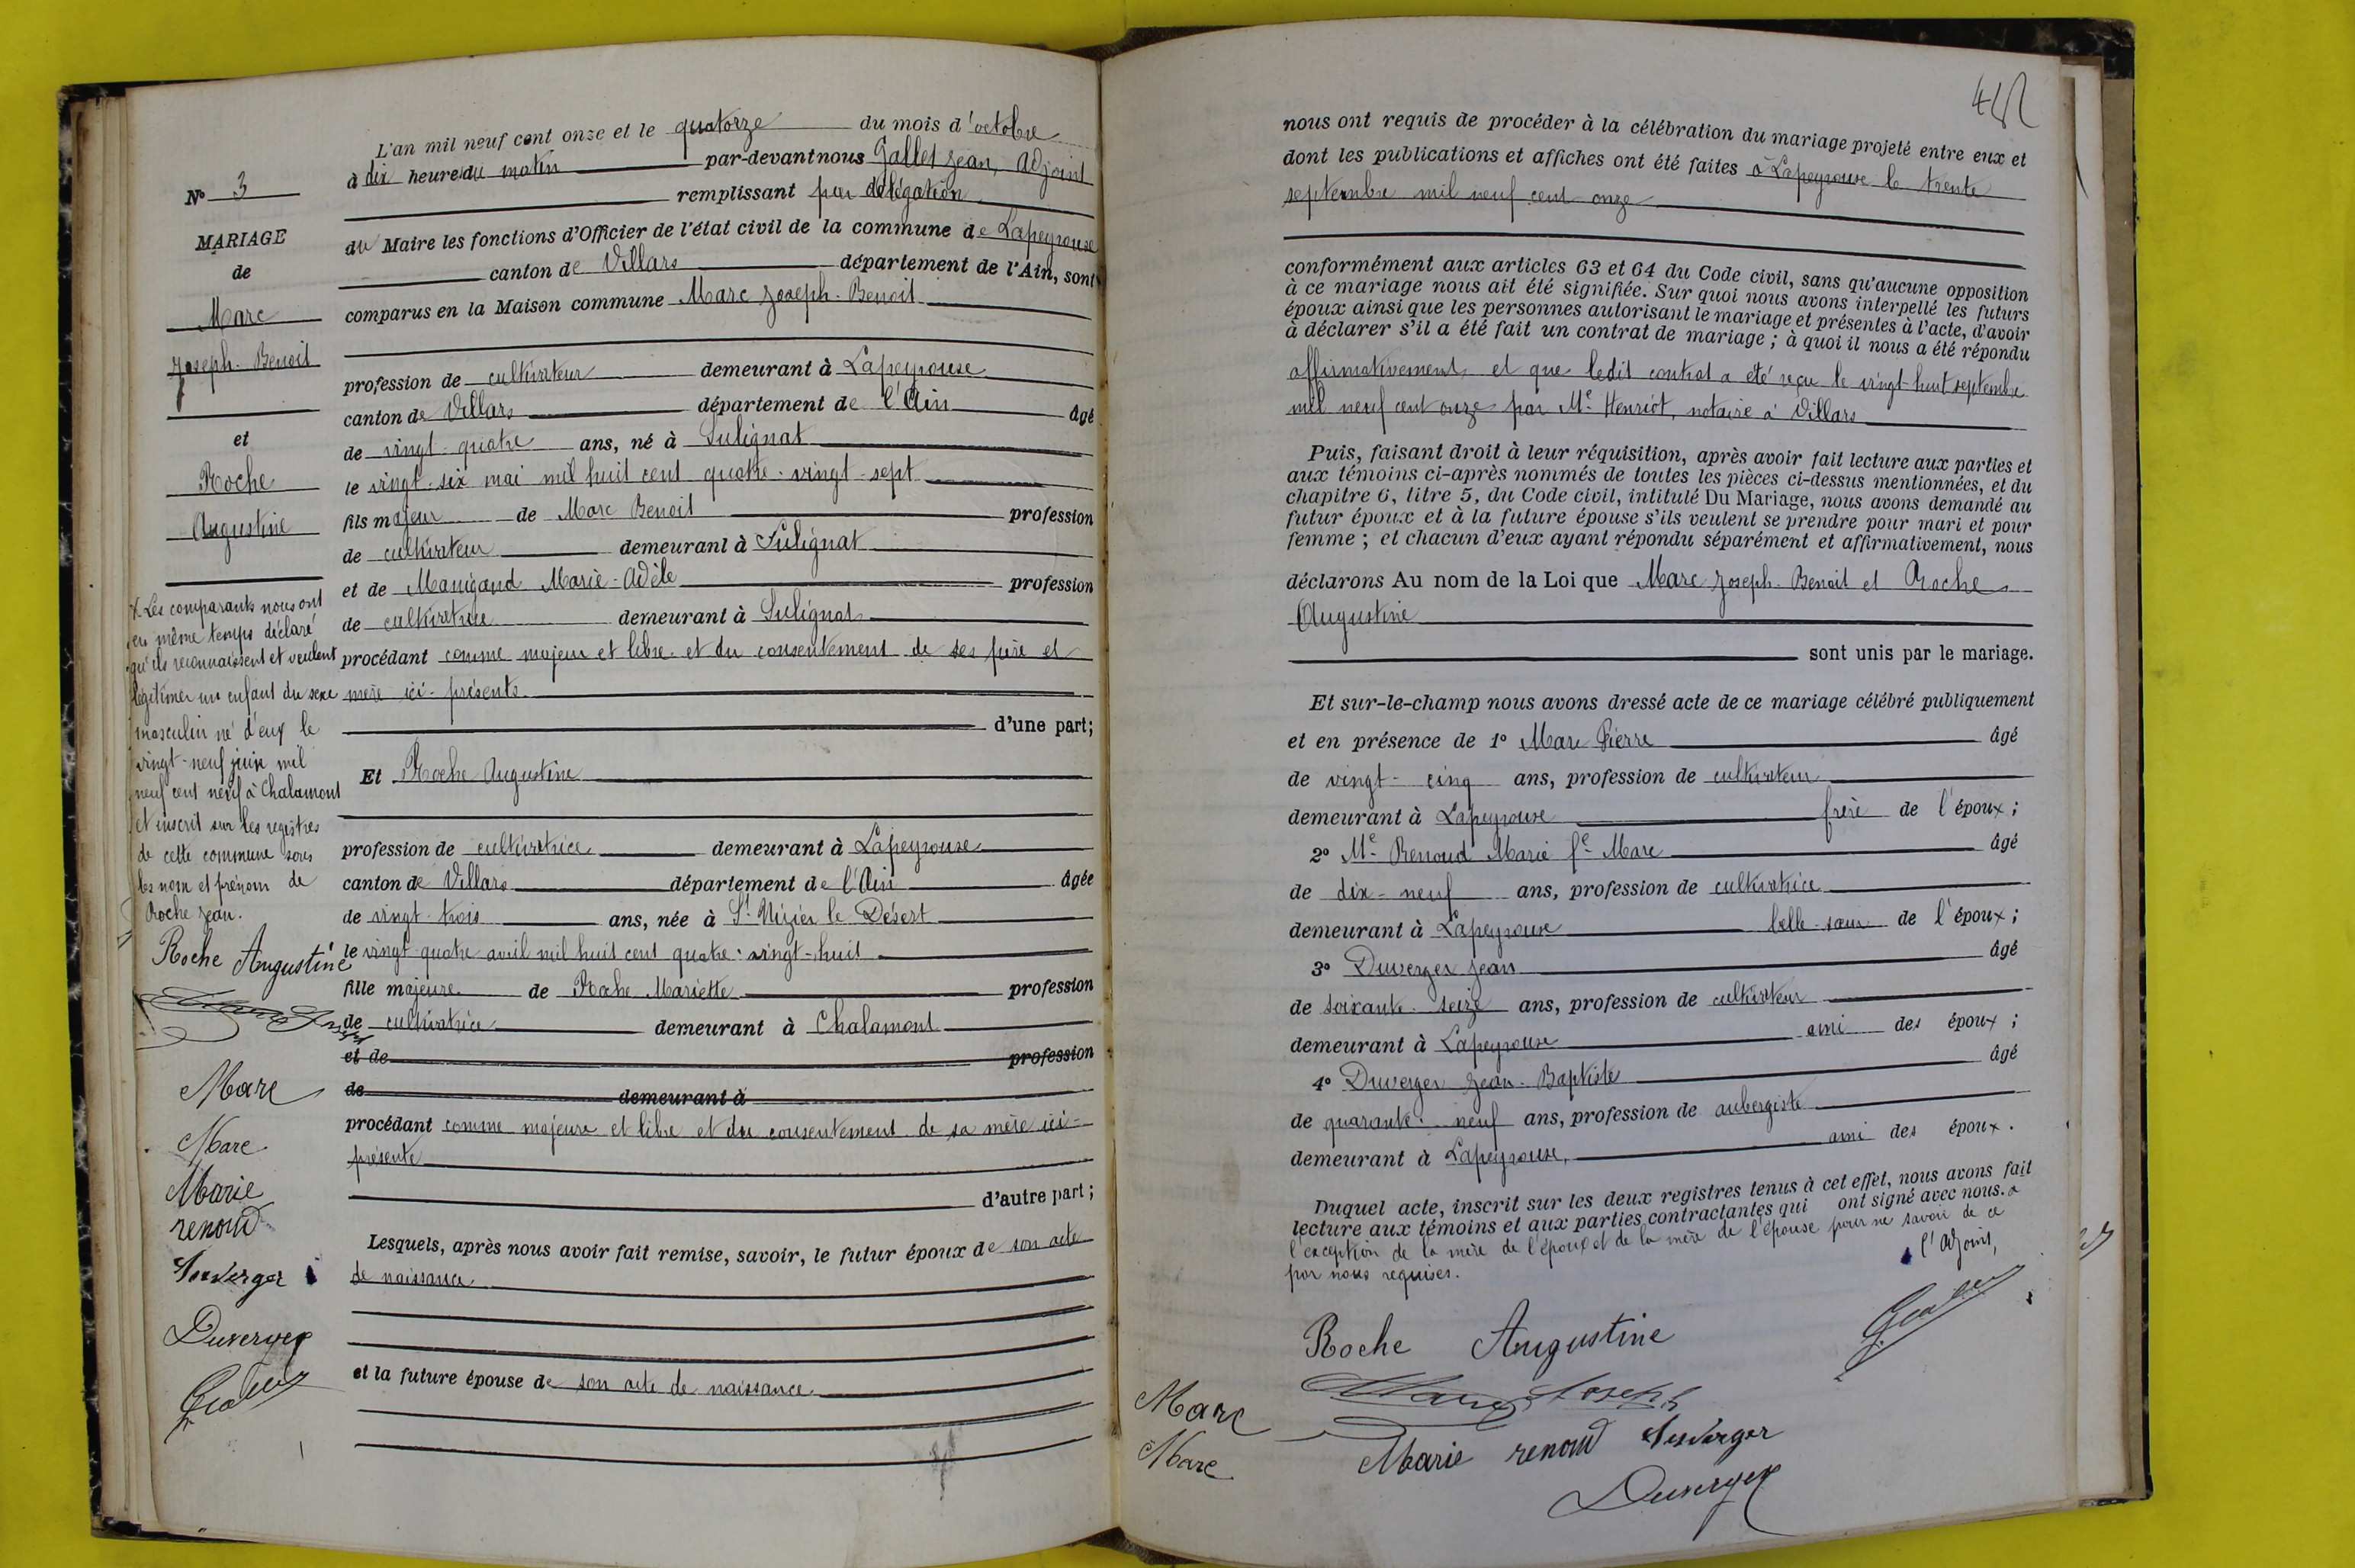 L'an mil neuf cent onze et le quatorze du mois d'octobre
à dix heures du matin par-devant nous Gallet Jean, Adjoint
remplissant par délégation
du Maire les fonctions d'Officier de l'état civil de la commune de Lapeyrouse
canton de Villars département de l'Ain, sont
comparus en la Maison commune Marc Joseph-Benoit
profession de cultivateur demeurant à Lapeyrouse
canton de Villars département de l'Ain âgé
de vingt-quatre ans, né à Sulignat
le vingt-six mai mil huit cent quatre-vingt-sept
fils majeur de Marc Benoit profession
de cultivateur demeurant à Sulignat
et de Manigand Marie-Adèle profession
de cultivatrice demeurant à Sulignat
procédant comme majeur et libre et du consentement de ses père et
mère ici-présents
d'une part;
Et Roche Augustine
profession de cultivatrice demeurant à Lapeyrouse
canton de Villars département de l'Ain âgée
de vingt-trois ans, née à St Nizier le Désert
le vingt-quatre avril mil huit cent quatre-vingt-huit
fille majeure de Roche Mariette profession
de cultivatrice demeurant à Chalamont
et de profession
de demeurant à
procédant comme majeure et libre et du consentement de sa mère ici-
présente
d'autre part;
Lesquels, après nous avoir fait remise, savoir, le futur époux de son acte
de naissance
et la future épouse de son acte de naissance
No 3
MARIAGE
de
Marc
Joseph-Benoit
et
Roche
Augustine
X Les comparants nous ont
en même temps déclaré
qu'ils reconnaissent et veulent
légitimer un enfant du sexe
masculin né d'eux le
vingt-neuf juin mil
neuf cent neuf à Chalamont
et inscrit sur les registres
de cette commune sous
les nom et prénom de
Roche Jean.
Roche Augustine
Marc
Marc
Marie
renoud
Duverger
Duverger
445
nous ont requis de procéder à la célébration du mariage projeté entre eux et
dont les publications et affiches ont été faites à Lapeyrouse le trente
septembre mil neuf cent onze
conformément aux articles 63 et 64 du Code civil, sans qu'aucune opposition
à ce mariage nous ait été signifiée. Sur quoi nous avons interpellé les futurs
époux ainsi que les personnes autorisant le mariage et présentes à l'acte, d'avoir
à déclarer s'il a été fait un contrat de mariage ; à quoi il nous a été répondu
affirmativement, et que ledit contrat a été reçu le vingt-huit septembre
mil neuf cent onze par Me Henriot, notaire à Villars
Puis, faisant droit à leur réquisition, après avoir fait lecture aux parties et
aux témoins ci-après nommés de toutes les pièces ci-dessus mentionnées, et du
chapitre 6, titre 5, du Code civil, intitulé Du Mariage, nous avons demandé au
futur époux et à la future épouse s'ils veulent se prendre pour mari et pour
femme ; et chacun d'eux ayant répondu séparément et affirmativement, nous
déclarons Au nom de la Loi que Marc Joseph-Benoit et Roche
Augustine
sont unis par le mariage.
Et sur-le-champ nous avons dressé acte de ce mariage célébré publiquement
et en présence de 1o Marc Pierre âgé
de vingt-cinq ans, profession de cultivateur
demeurant à Lapeyrouse frère de l'époux;
2o Me Renoud Marie fe Marc âgé
de dix-neuf ans, profession de cultivatrice
demeurant à Lapeyrouse belle-sœur de l'époux;
3o Duverger Jean âgé
de soixante-seize ans, profession de cultivateur
demeurant à Lapeyrouse ami des époux;
4o Duverger Jean-Baptiste âgé
de quarante-neuf ans, profession de aubergiste
demeurant à Lapeyrouse, ami des époux.
Duquel acte, inscrit sur les deux registres tenus à cet effet, nous avons fait
lecture aux témoins et aux parties contractantes qui ont signé avec nous. a
l'exception de la mère de l'époux et de la mère de l'épouse pour ne savoir de ce
par nous requises.
l'Adjoint,
Roche Augustine
Marc Joseph
Marc
Marc
Marie renoud Duverger
Duverger